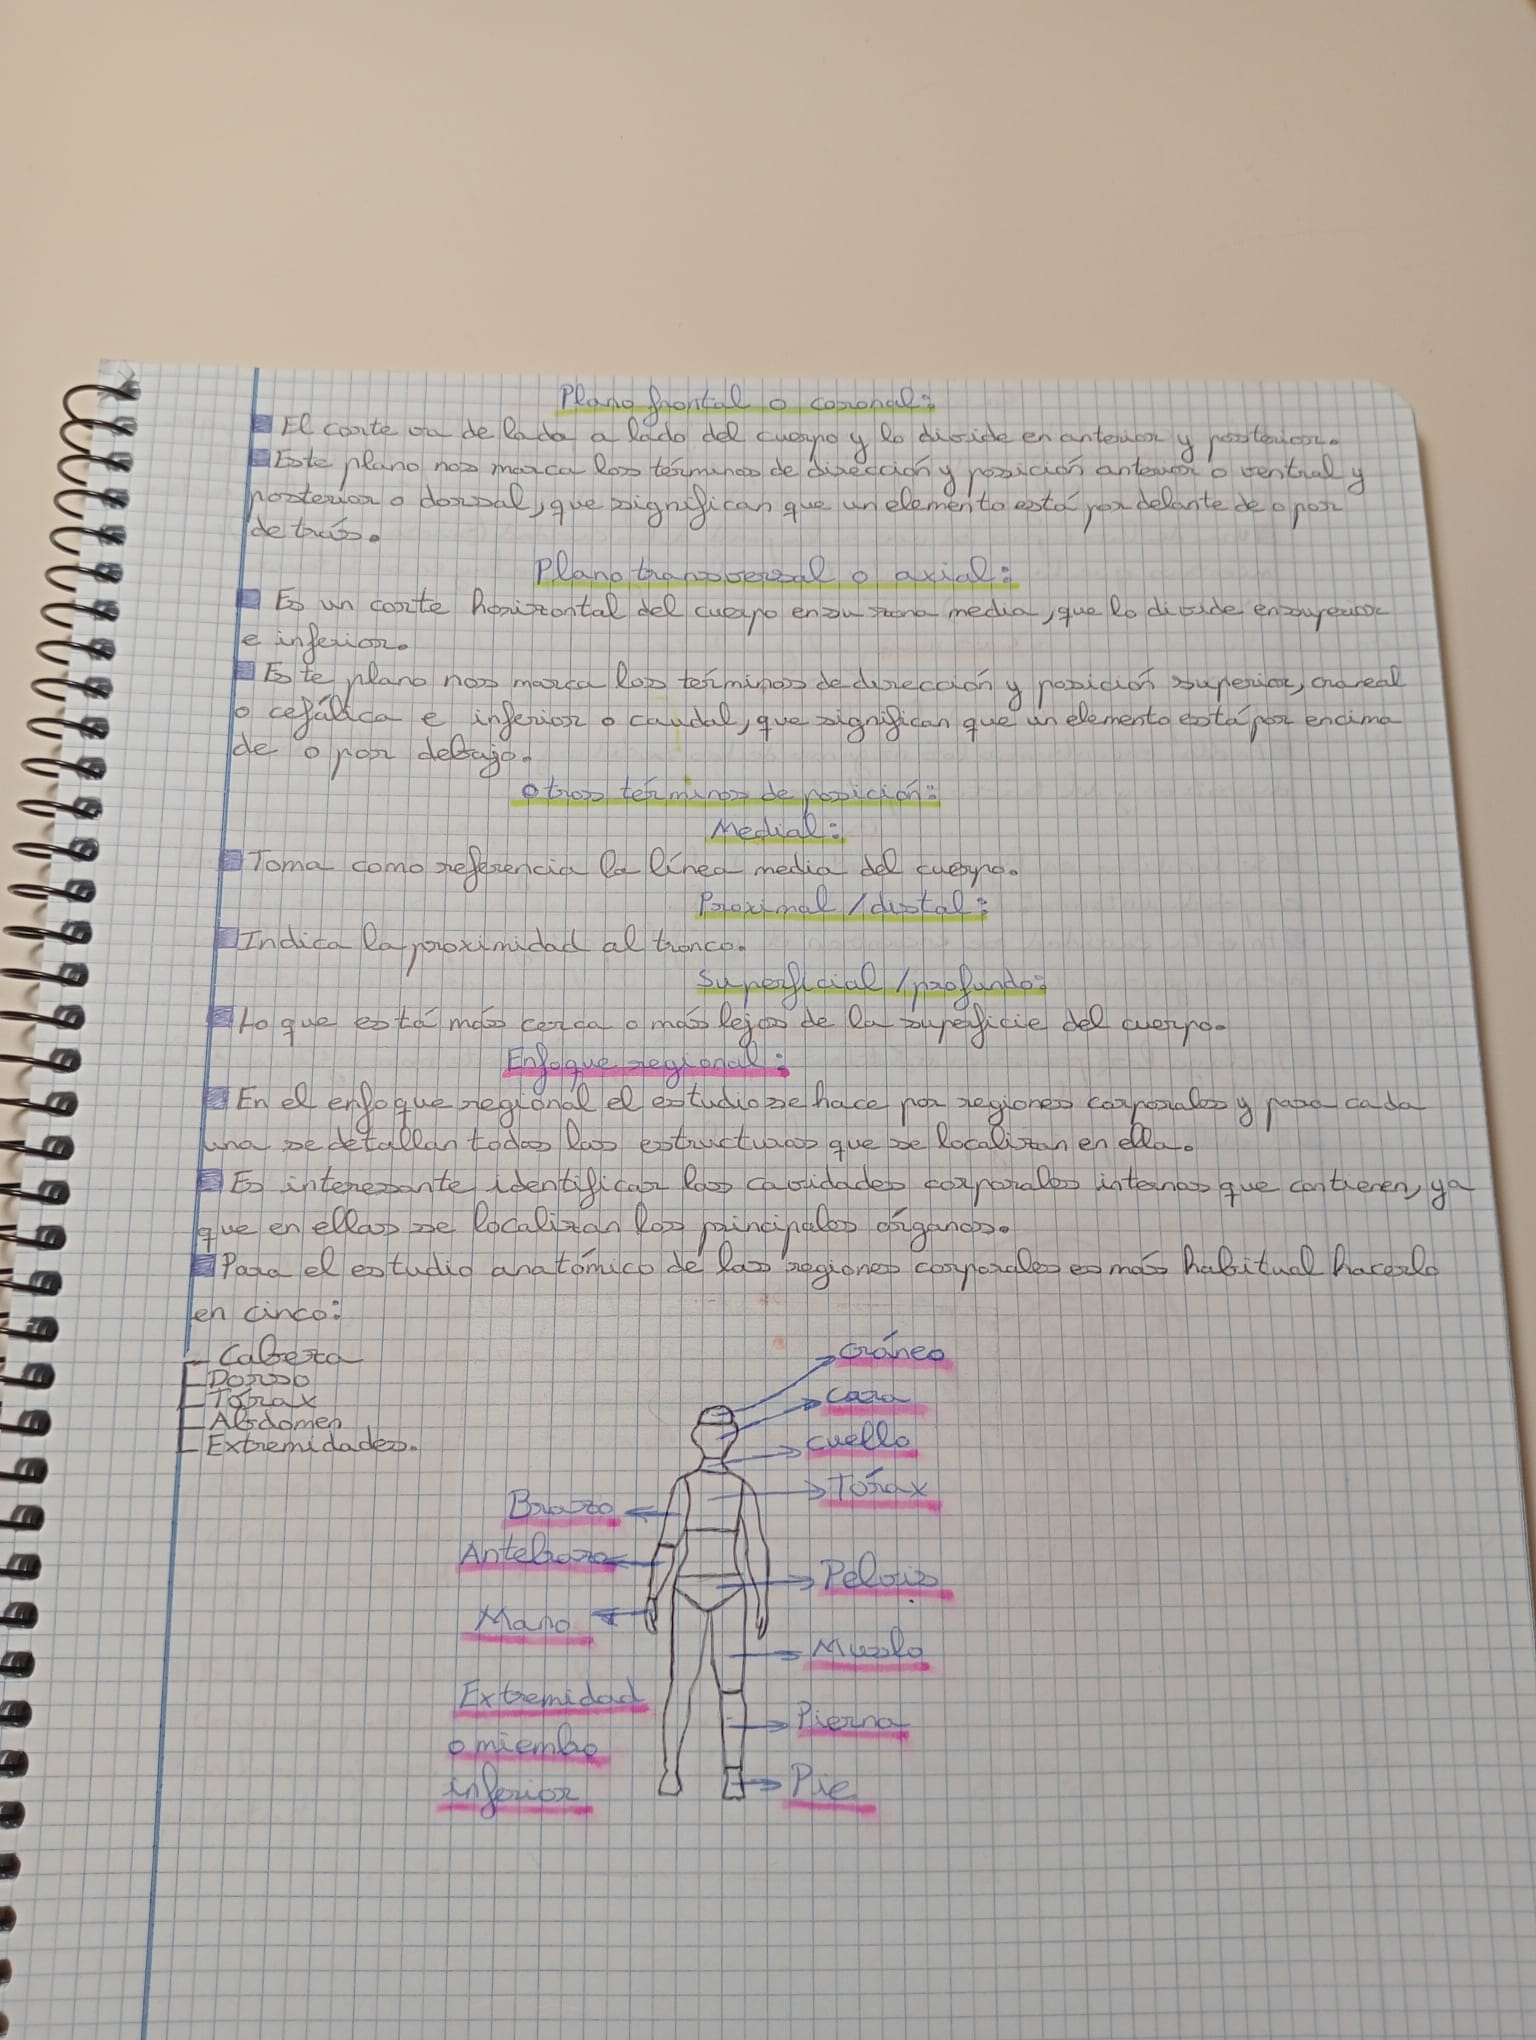 Plano frontal o coronal:
El corte va de lado a lado del cuerpo y lo divide en anterior y posterior.
Este plano nos marca los términos de dirección y posición anterior o ventral y
posterior o dorsal, que significan que un elemento está por delante de o por
detrás.
Plano transversal o axial:
Es un corte horizontal del cuerpo en su zona media, que lo divide en superior
e inferior.
Este plano nos marca los términos de dirección y posición superior, craneal
o cefálica e inferior o caudal, que significan que un elemento está por encima
de o por debajo.
Otros términos de posición:
Medial:
Toma como referencia la línea media del cuerpo.
Proximal / distal:
Indica la proximidad al tronco.
Superficial / profundo:
Lo que está más cerca o más lejos de la superficie del cuerpo.
Enfoque regional:
En el enfoque regional el estudio se hace por regiones corporales y para cada
una se detallan todas las estructuras que se localizan en ella.
Es interesante identificar las cavidades corporales internas que contienen, ya
que en ellas se localizan los principales órganos.
Para el estudio anatómico de las regiones corporales es más habitual hacerlo
en cinco:
- Cabeza
- Dorso
- Tórax
- Abdomen
- Extremidades.
cráneo
cara
cuello
Tórax
Brazo
Antebrazo
Pelvis
Mano
Muslo
Extremidad
o miembo
inferior
Pierna
Pie